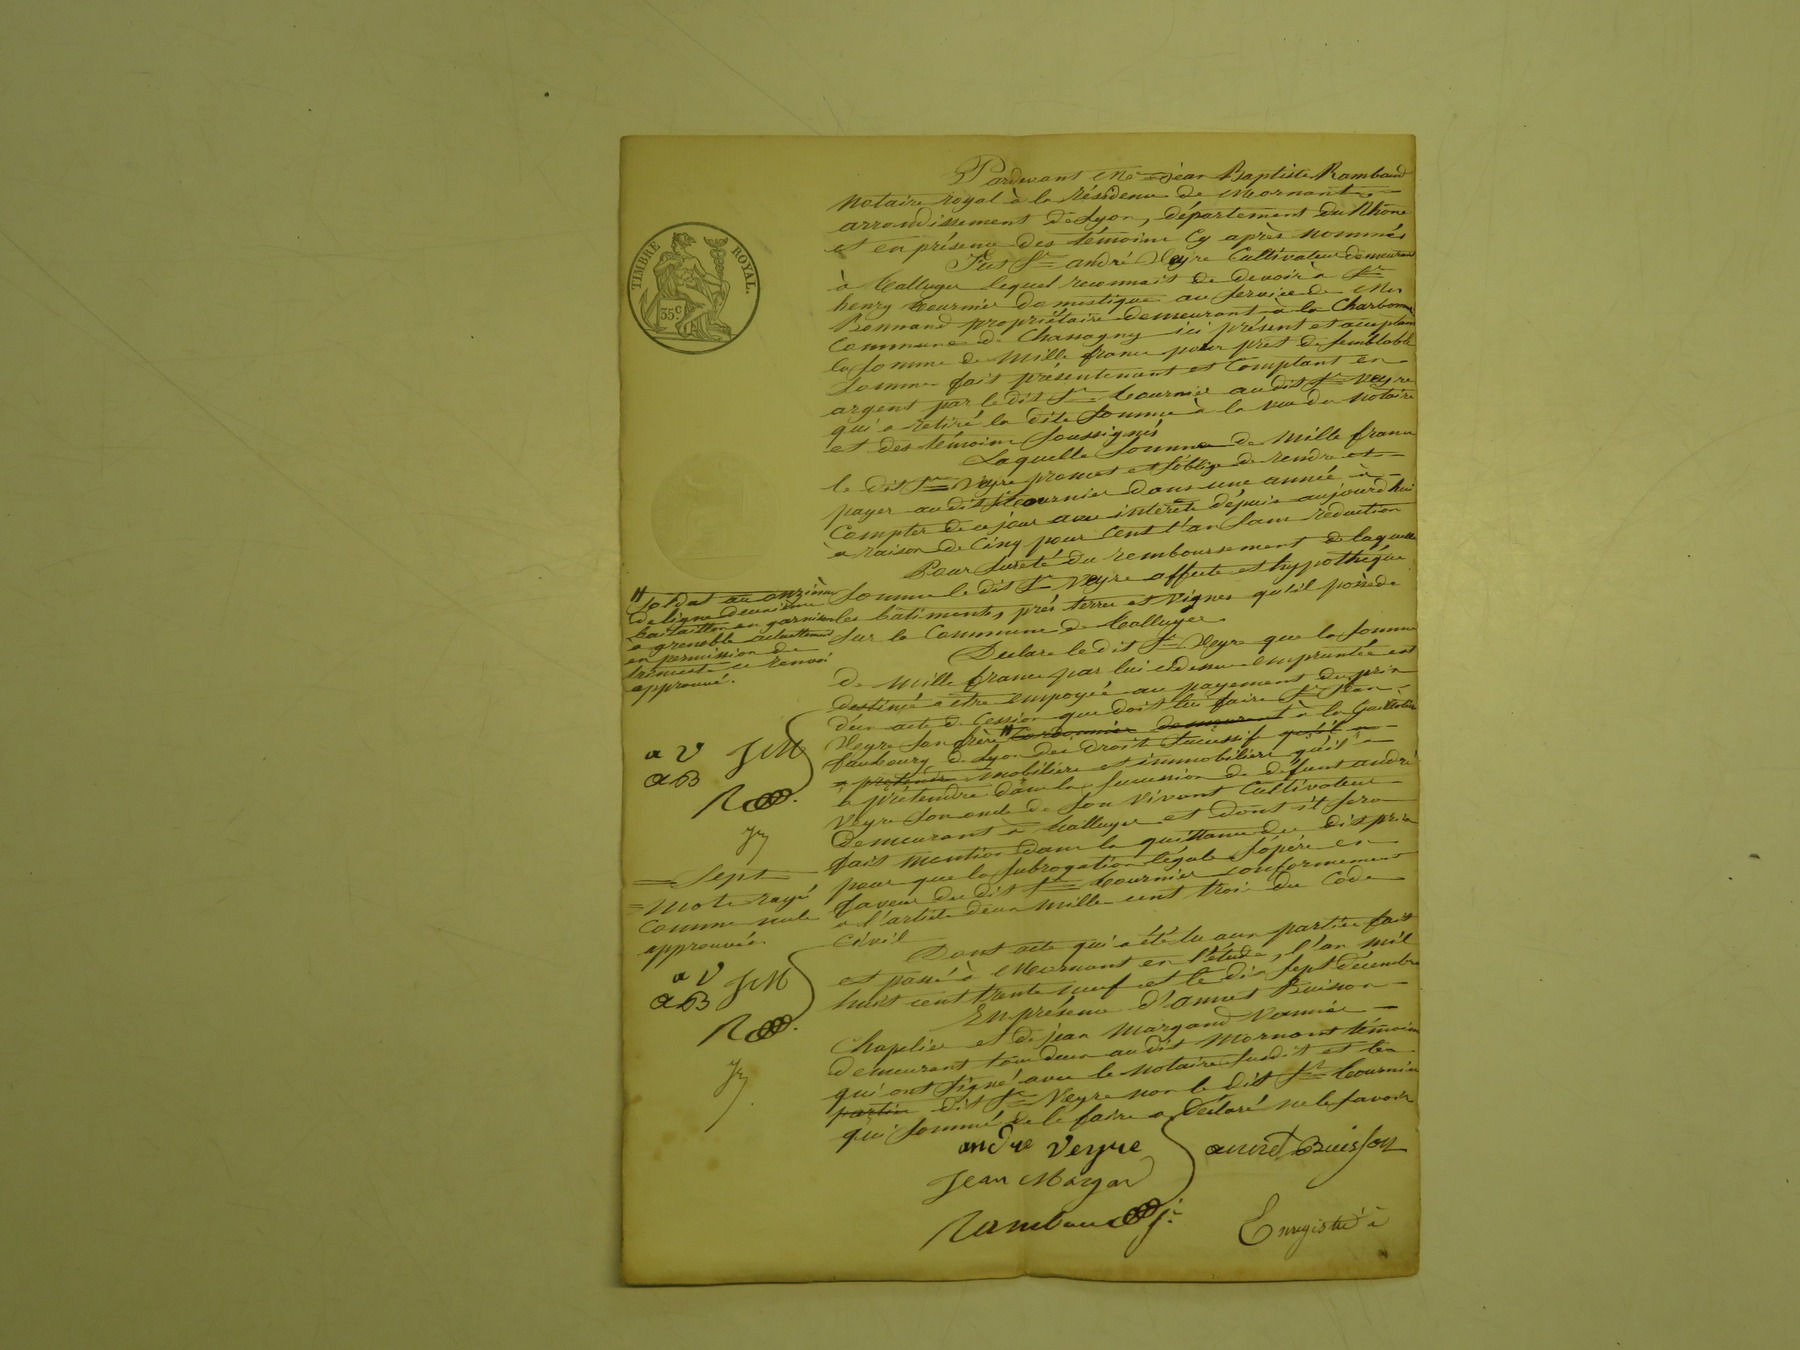 TIMBRE ROYAL.
35 c.
Pardevant Me jean Baptiste Rambaud
Notaire royal à la résidence de Mornant
arrondissement de Lyon, département du Rhône
et en présence des témoins Cy après nommés
Fut Sr andré Veyre Cultivateur demeurant
à lequel reconnait de devoir à Sr
henry Cournier domestique au Service de Mr
Bonnand propriétaire demeurant à la Charbonn
Commune de Chassagny ici présent et acceptant
la Somme de Mille francs pour prêt de semblable
Somme fait présentement et Comptant en
argent par le dit Sr Cournier au dit Sr Veyre
qui a retiré la dite Somme à la vue du Notaire
et des témoins Soussignés
Laquelle Somme de Mille francs
le dit Sr Veyre promet et s'oblige de rendre et
payer au dit Sr Cournier dans une année à
Compter de ce jour avec intérêts depuis aujourd'hui
à raison de Cinq pour Cent l'an Sans réduction
Pour Sureté du remboursement de laquelle
Somme le dit Sr Veyre affecte et hypothèque
les bâtiments, prés terres et Vignes qu'il possède
Sur la Commune de
Déclare le dit Sr Veyre que la Somme
de Mille francs par lui cidessus empruntée est
destinée a être empoyée au payement du prix
d'un acte de Cession que doit lui faire Sr Jean
Veyre Son frère # Cordonnier demeurant à la Guillotière
faubourg de Lyon des droits Successifs qu'il a
a prétendre mobiliers et immobiliers qu'il a
a prétendre dans la Succession de défunt andré
Veyre Son oncle de Son Vivant Cultivateur
demeurant à et dont il Sera
fait Mention dans la quittance du dit prix
pour que la Subrogation légale S'opère en
faveur du dit Sr Cournier conformément
a l'article deux mille cent trois du Code
Civil
Dont acte qui a été lu aux parties fait
et passé à Mornant en l'étude, l'an mil
huit cent trente neuf et le dix sept décembre
En présence d'annet Buisson
Chapelier et de jean Margand
demeurant tous deux au dit Mornant témoins
qui ont Signé avec le notaire Susdit et les
parties dit Sr Veyre non le dit Sr Cournier
qui Sommé de le faire a déclaré ne le Savoir
# Soldat au onzième
de ligne deuxième
bataillon en garnison
a grenoble actuellement
en permission de
trimestre ce renvoi
approuvé.
a V JM
a B
R
Sept
Mots rayé
Comme nuls
approuvés
a V JM
a B
R
andre Veyre
annet Buisson
Jean Margan
Rambaud
Enregistré à